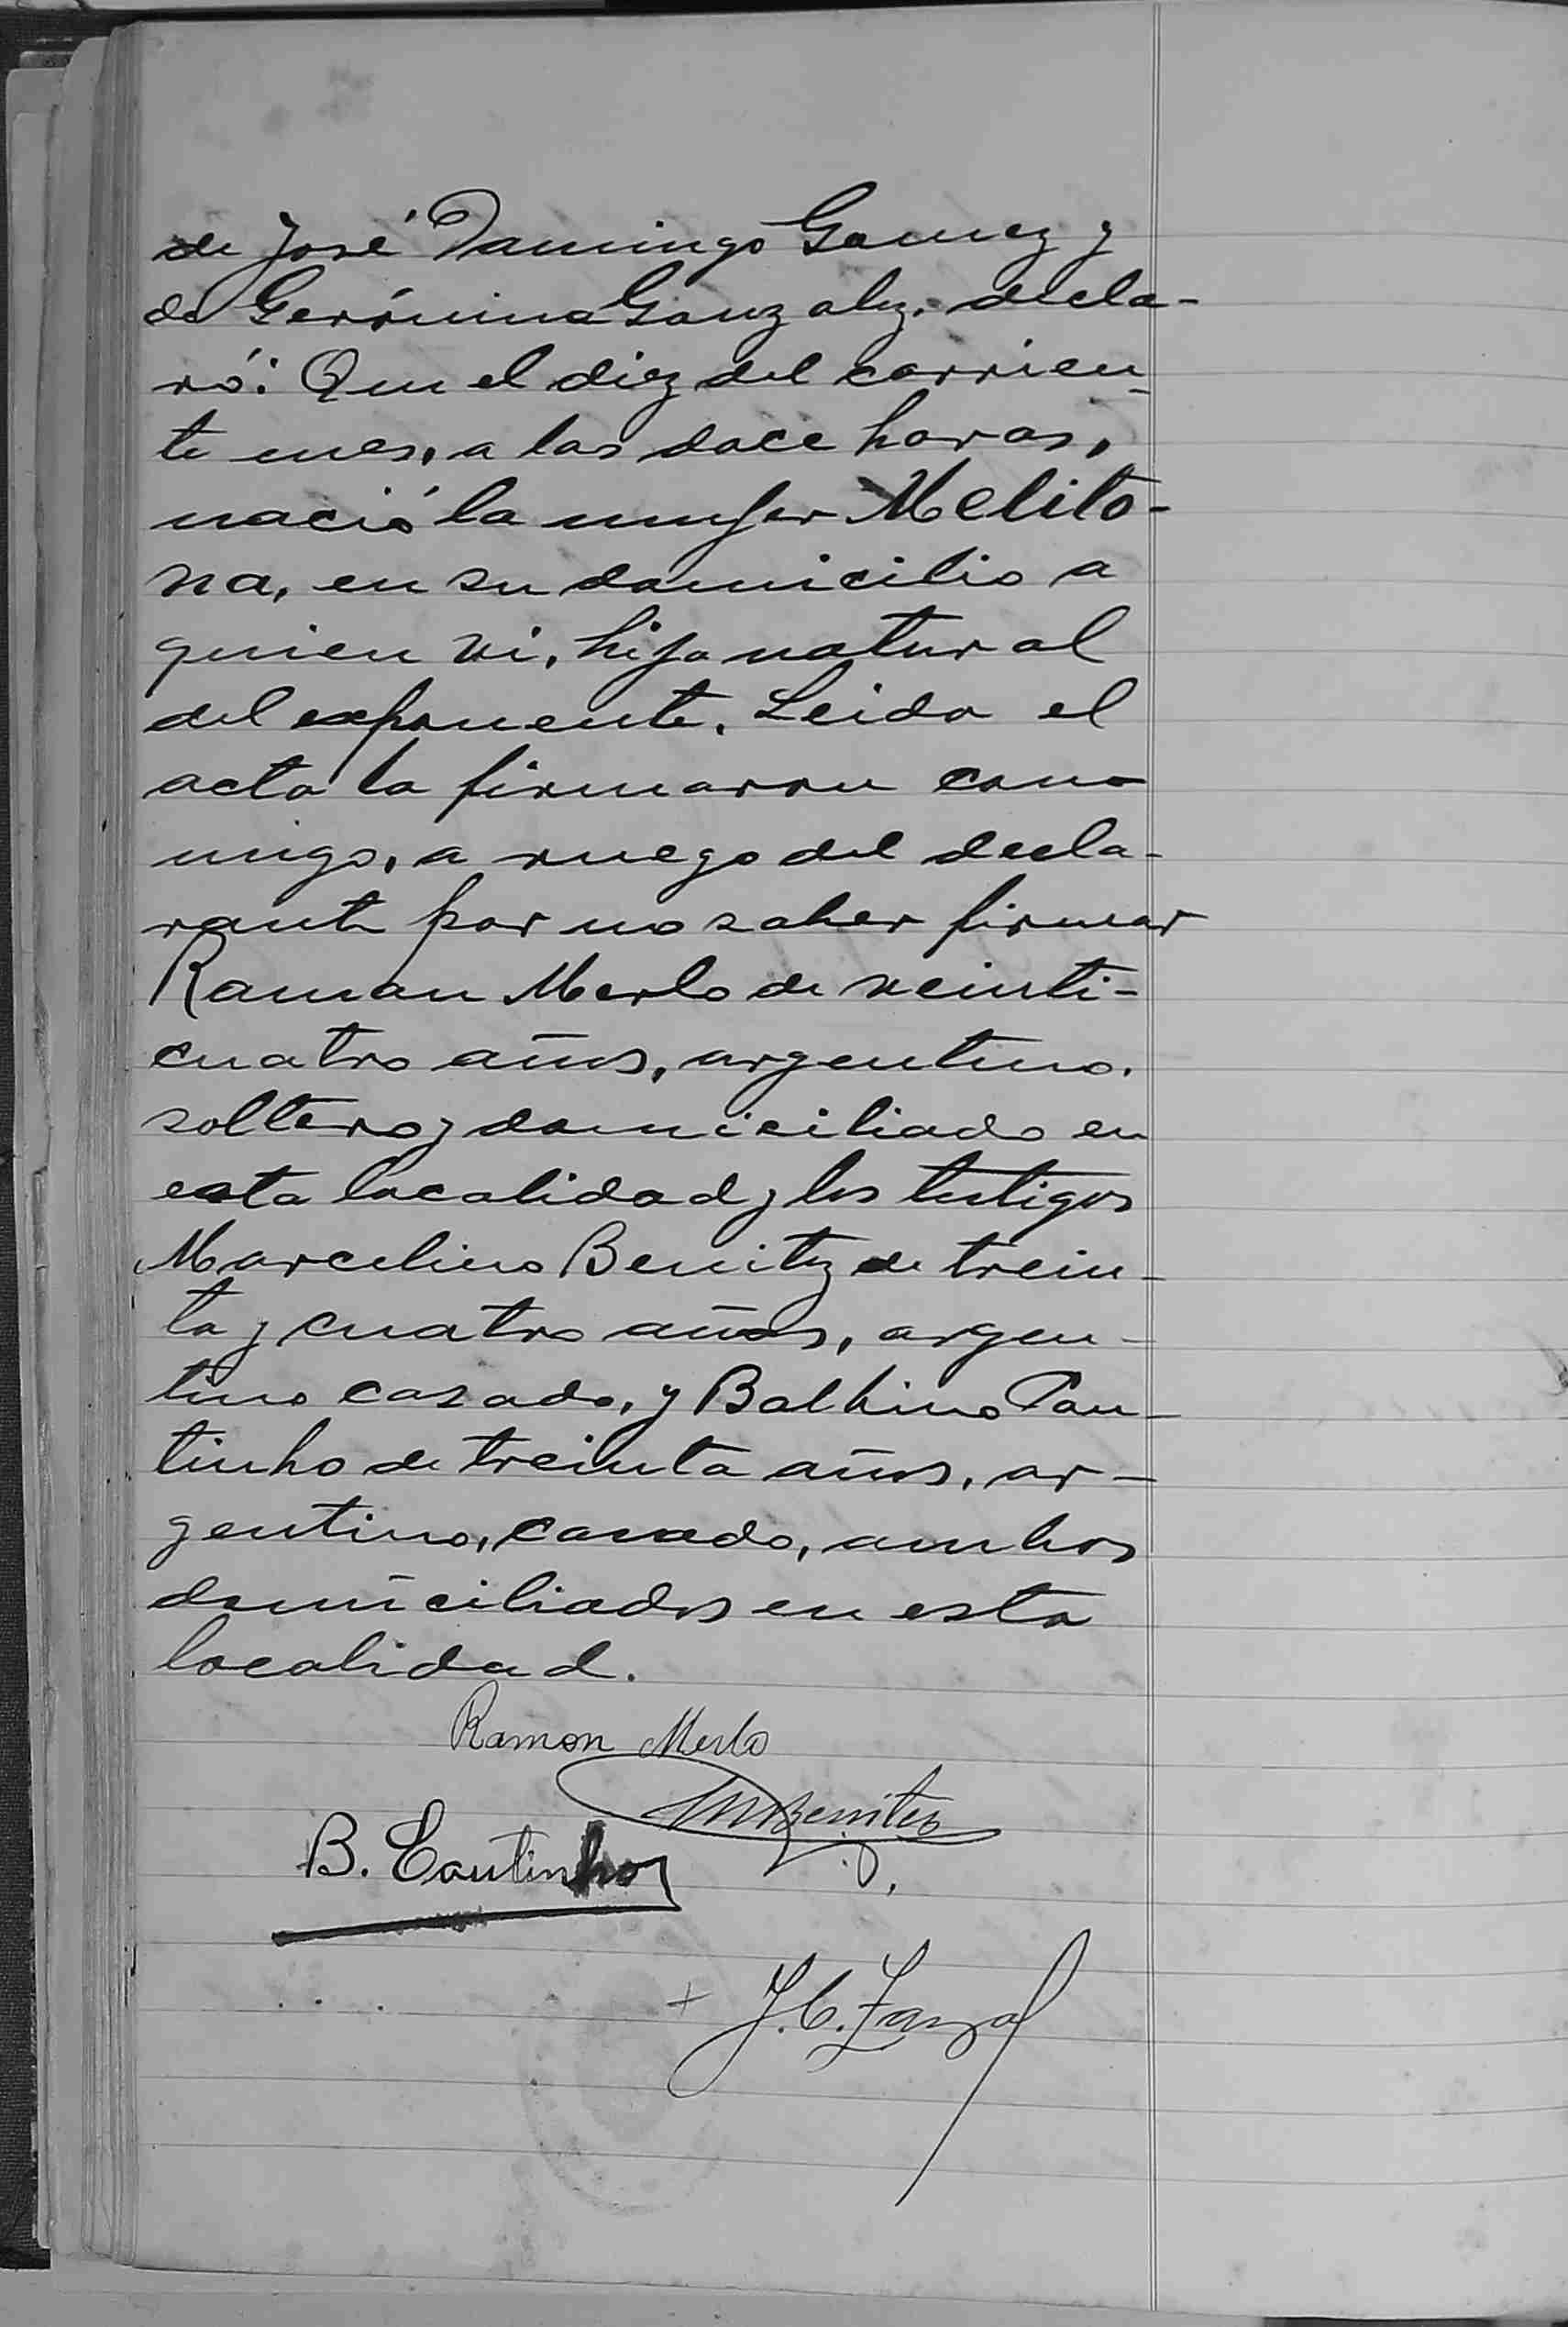 de José Domingo Gomez y
de Gerónima Gonzalez, decla-
ró: Que el diez del corrien-
te mes, a las doce horas,
nació la mujer Melito-
na, en su domicilio a
quien vi, hija natural
del exponente. Leida el
acta la firmaron con-
migo, a ruego del decla-
rante por no saber firmar
Ramon Merlo de veinti-
cuatro años, argentino.
soltero y domiciliado en
esta localidad y los testigos
Marcelino Benitez de trein-
ta y cuatro años, argen-
tino casado, y Balbino Cou-
tinho de treinta años, ar-
gentino, casado, ambos
domiciliados en esta
localidad.
Ramon Merlo
M Benitez
B. Coutinho
J. C.